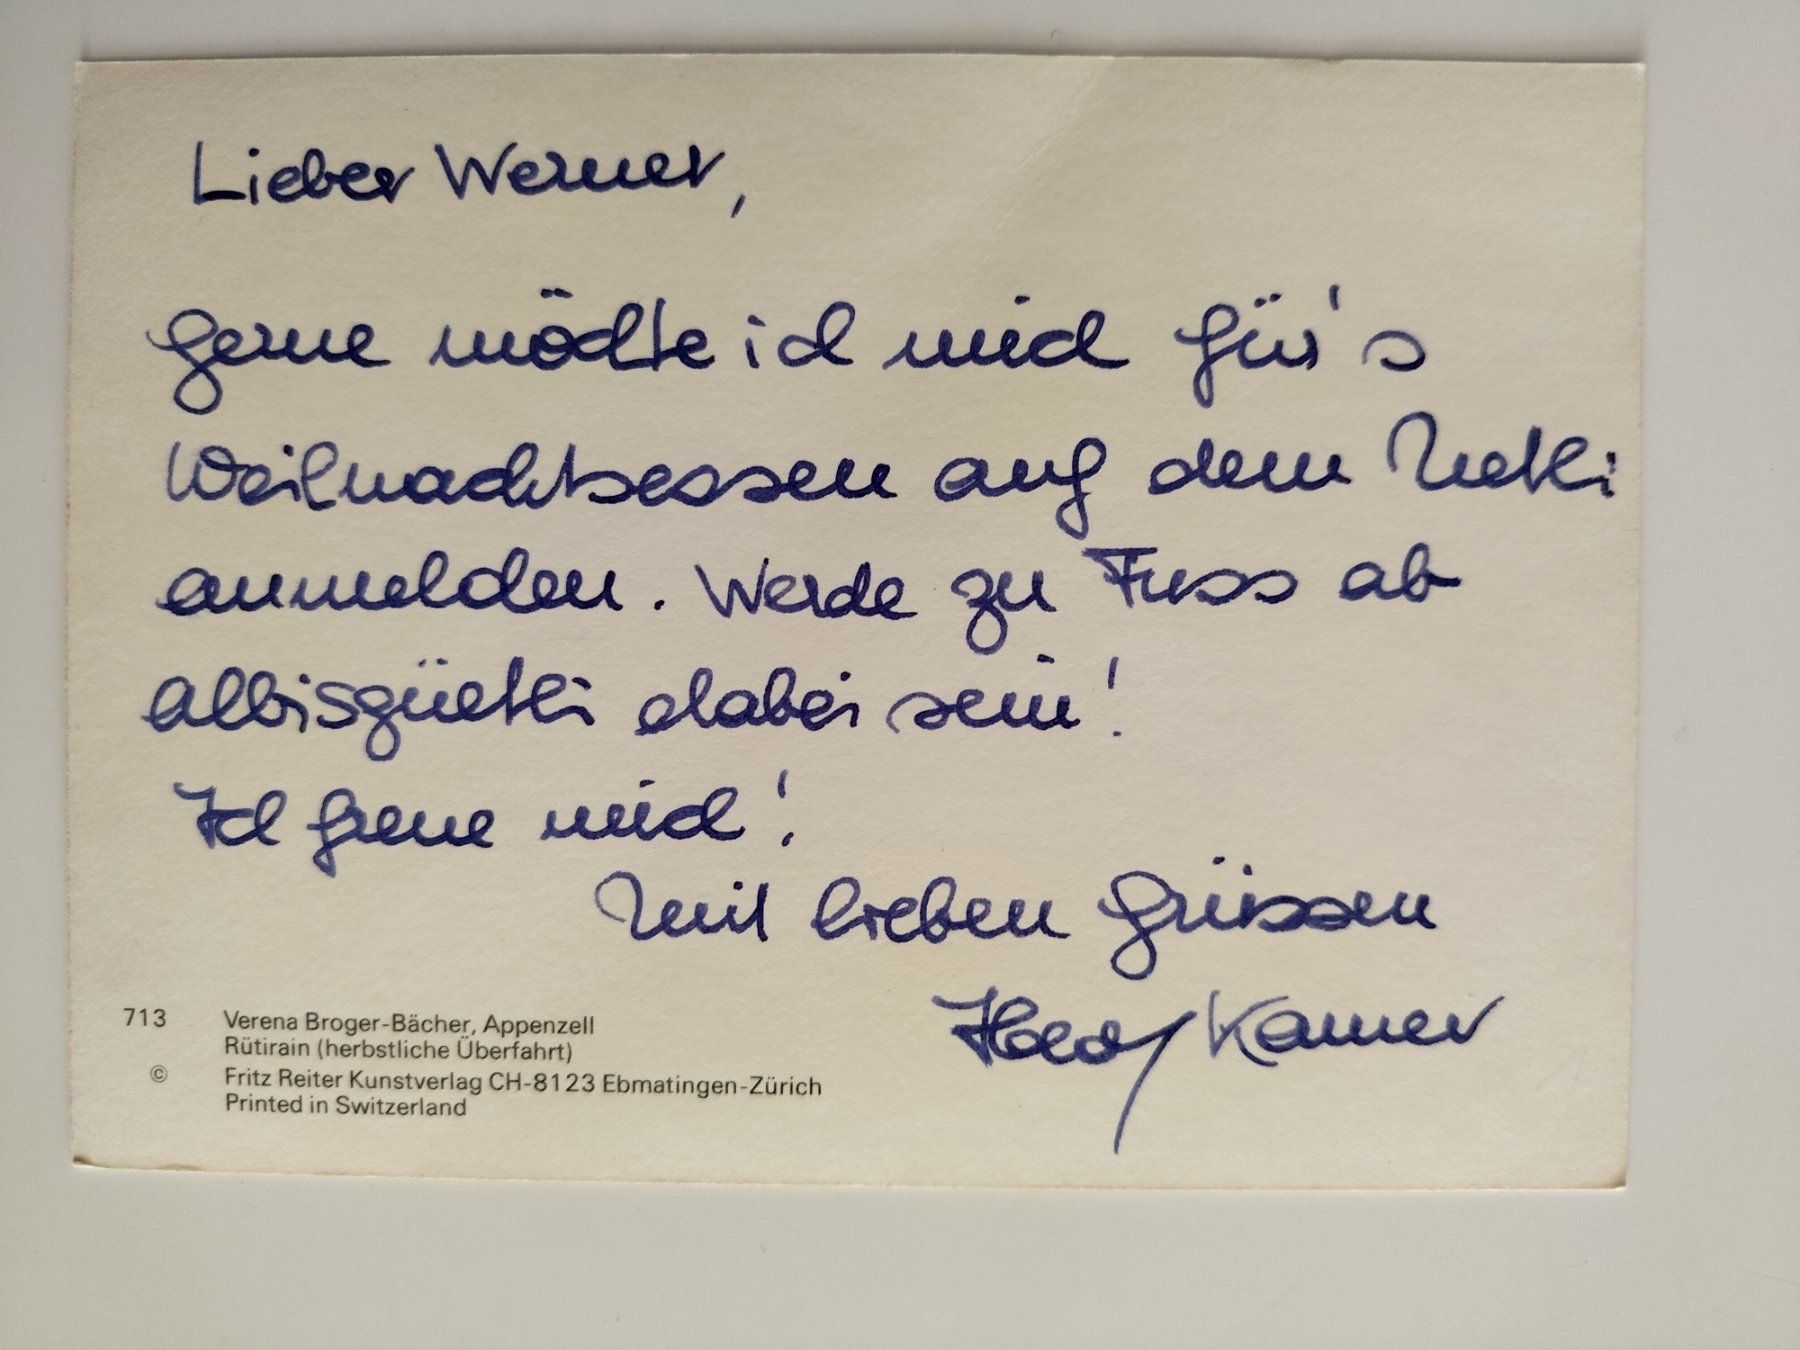 Lieber Werner,
gerne möchte ich mich für's
Weihnachtsessen auf dem Uetli
anmelden. Werde zu Fuss ab
Albisgüetli dabei sein!
Ich freue mich!
Mit lieben Grüssen
Kamer
713 Verena Broger-Bächer, Appenzell
Rütirain (herbstliche Überfahrt)
© Fritz Reiter Kunstverlag CH-8123 Ebmatingen-Zürich
Printed in Switzerland